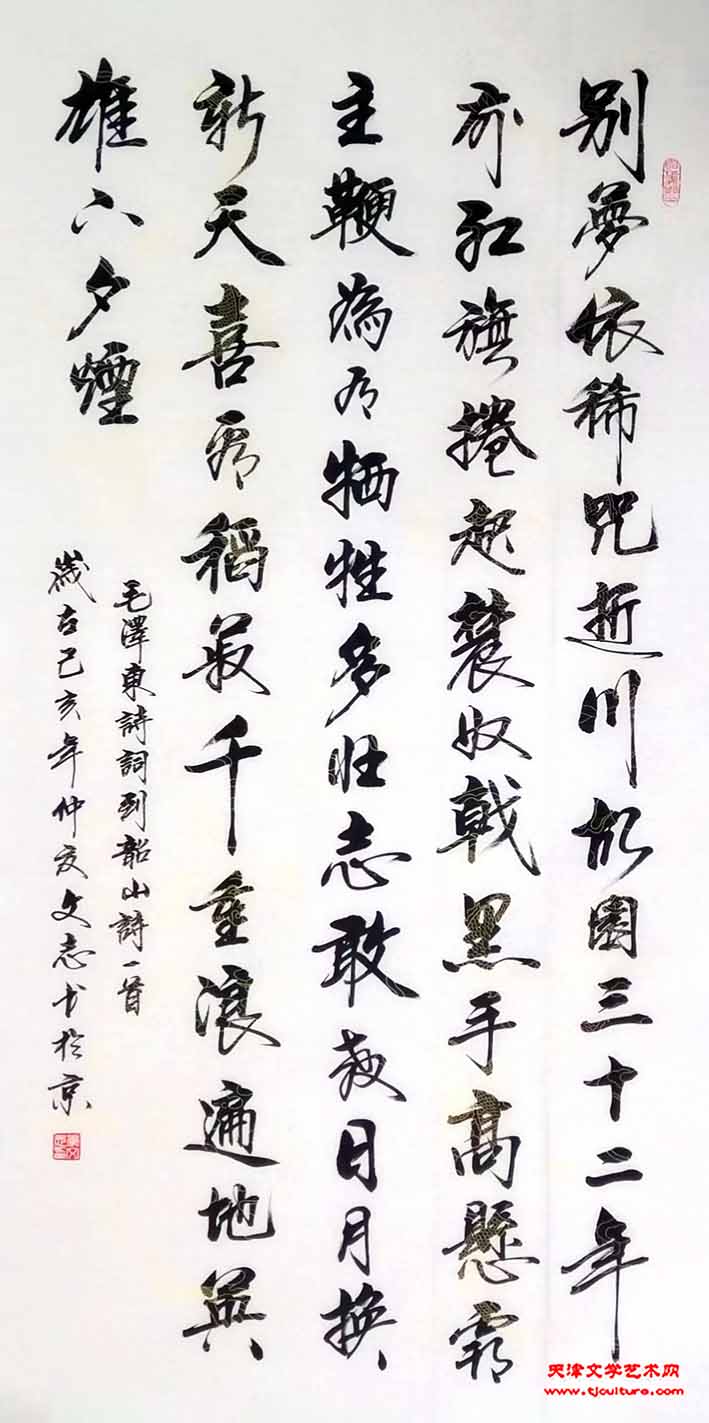 别夢依稀咒逝川故園三十二年
前红旗捲起農奴戟黑手高懸霸
主鞭為有牺牲多壮志敢教日月换
新天喜看稻菽千重浪遍地英
雄下夕煙
毛澤東詩詞到韶山詩一首
歲在己亥年仲夏文志书於京
天津文学艺术网
www.tjculture.com